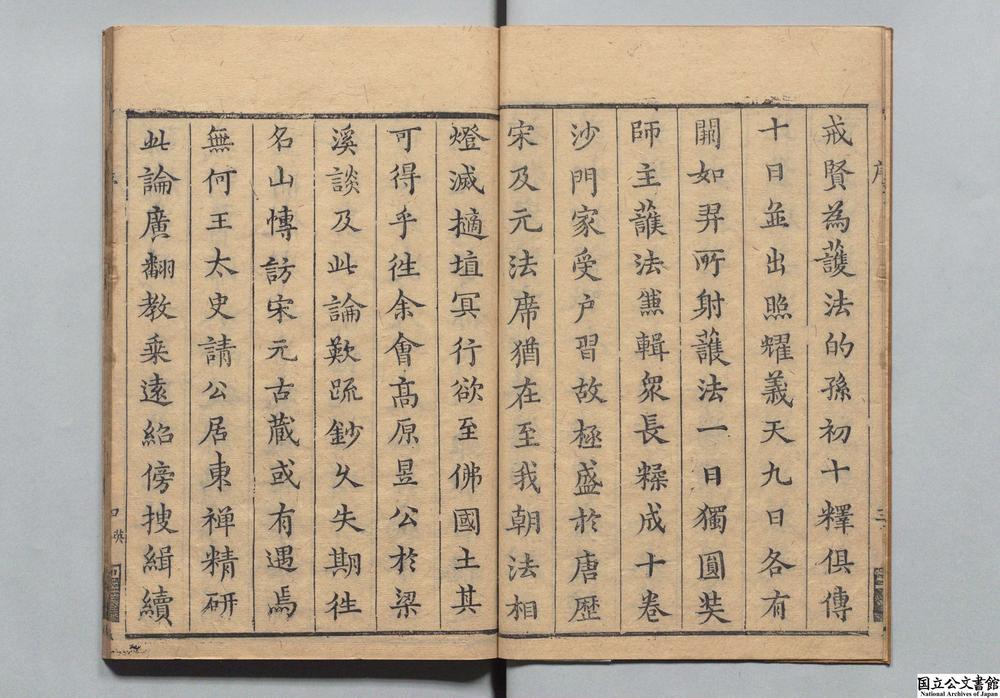 戒賢為護法的孫初十釋俱傳
十日並出照耀義天九日各有
關如羿所射護法一日獨圓奘
師主護法兼輯衆長糅成十卷
沙門家受戶習故極盛於唐歷
宋及元法席猶在至我朝法相
燈滅擿埴冥行欲至佛國土其
可得乎徃余會高原昱公於梁
溪談及此論歎疏鈔久失期徃
名山博訪宋元古藏或有遇焉
無何王太史請公居東禅精研
此論廣翻教乗遠紹傍搜緝續
序
三
国立公文書館
National Archives of Japan